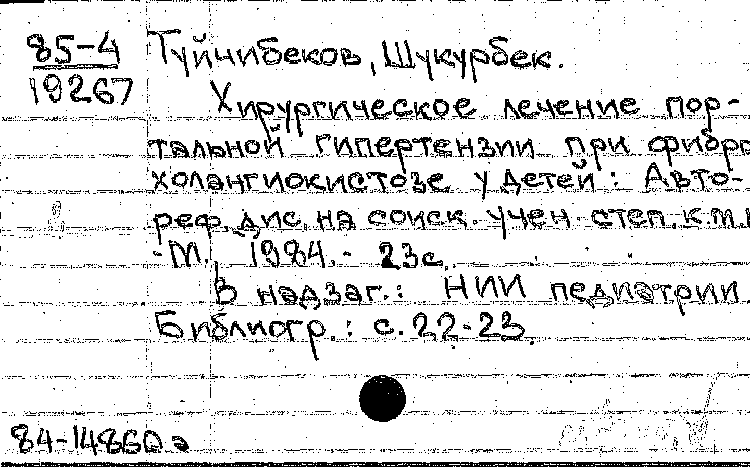 85-4
19267
Туйчибеков, Шукурбек.
Хирургическое лечение пор-
тальной гипертензии при фибро
холангиокистозе у детей: Авто-
реф. дис. на соиск. учен. степ. к.м.н
-М., 1984.- 23с.
В надзаг.: НИИ педиатрии
Библиогр.: с.22-23.
84-14860а